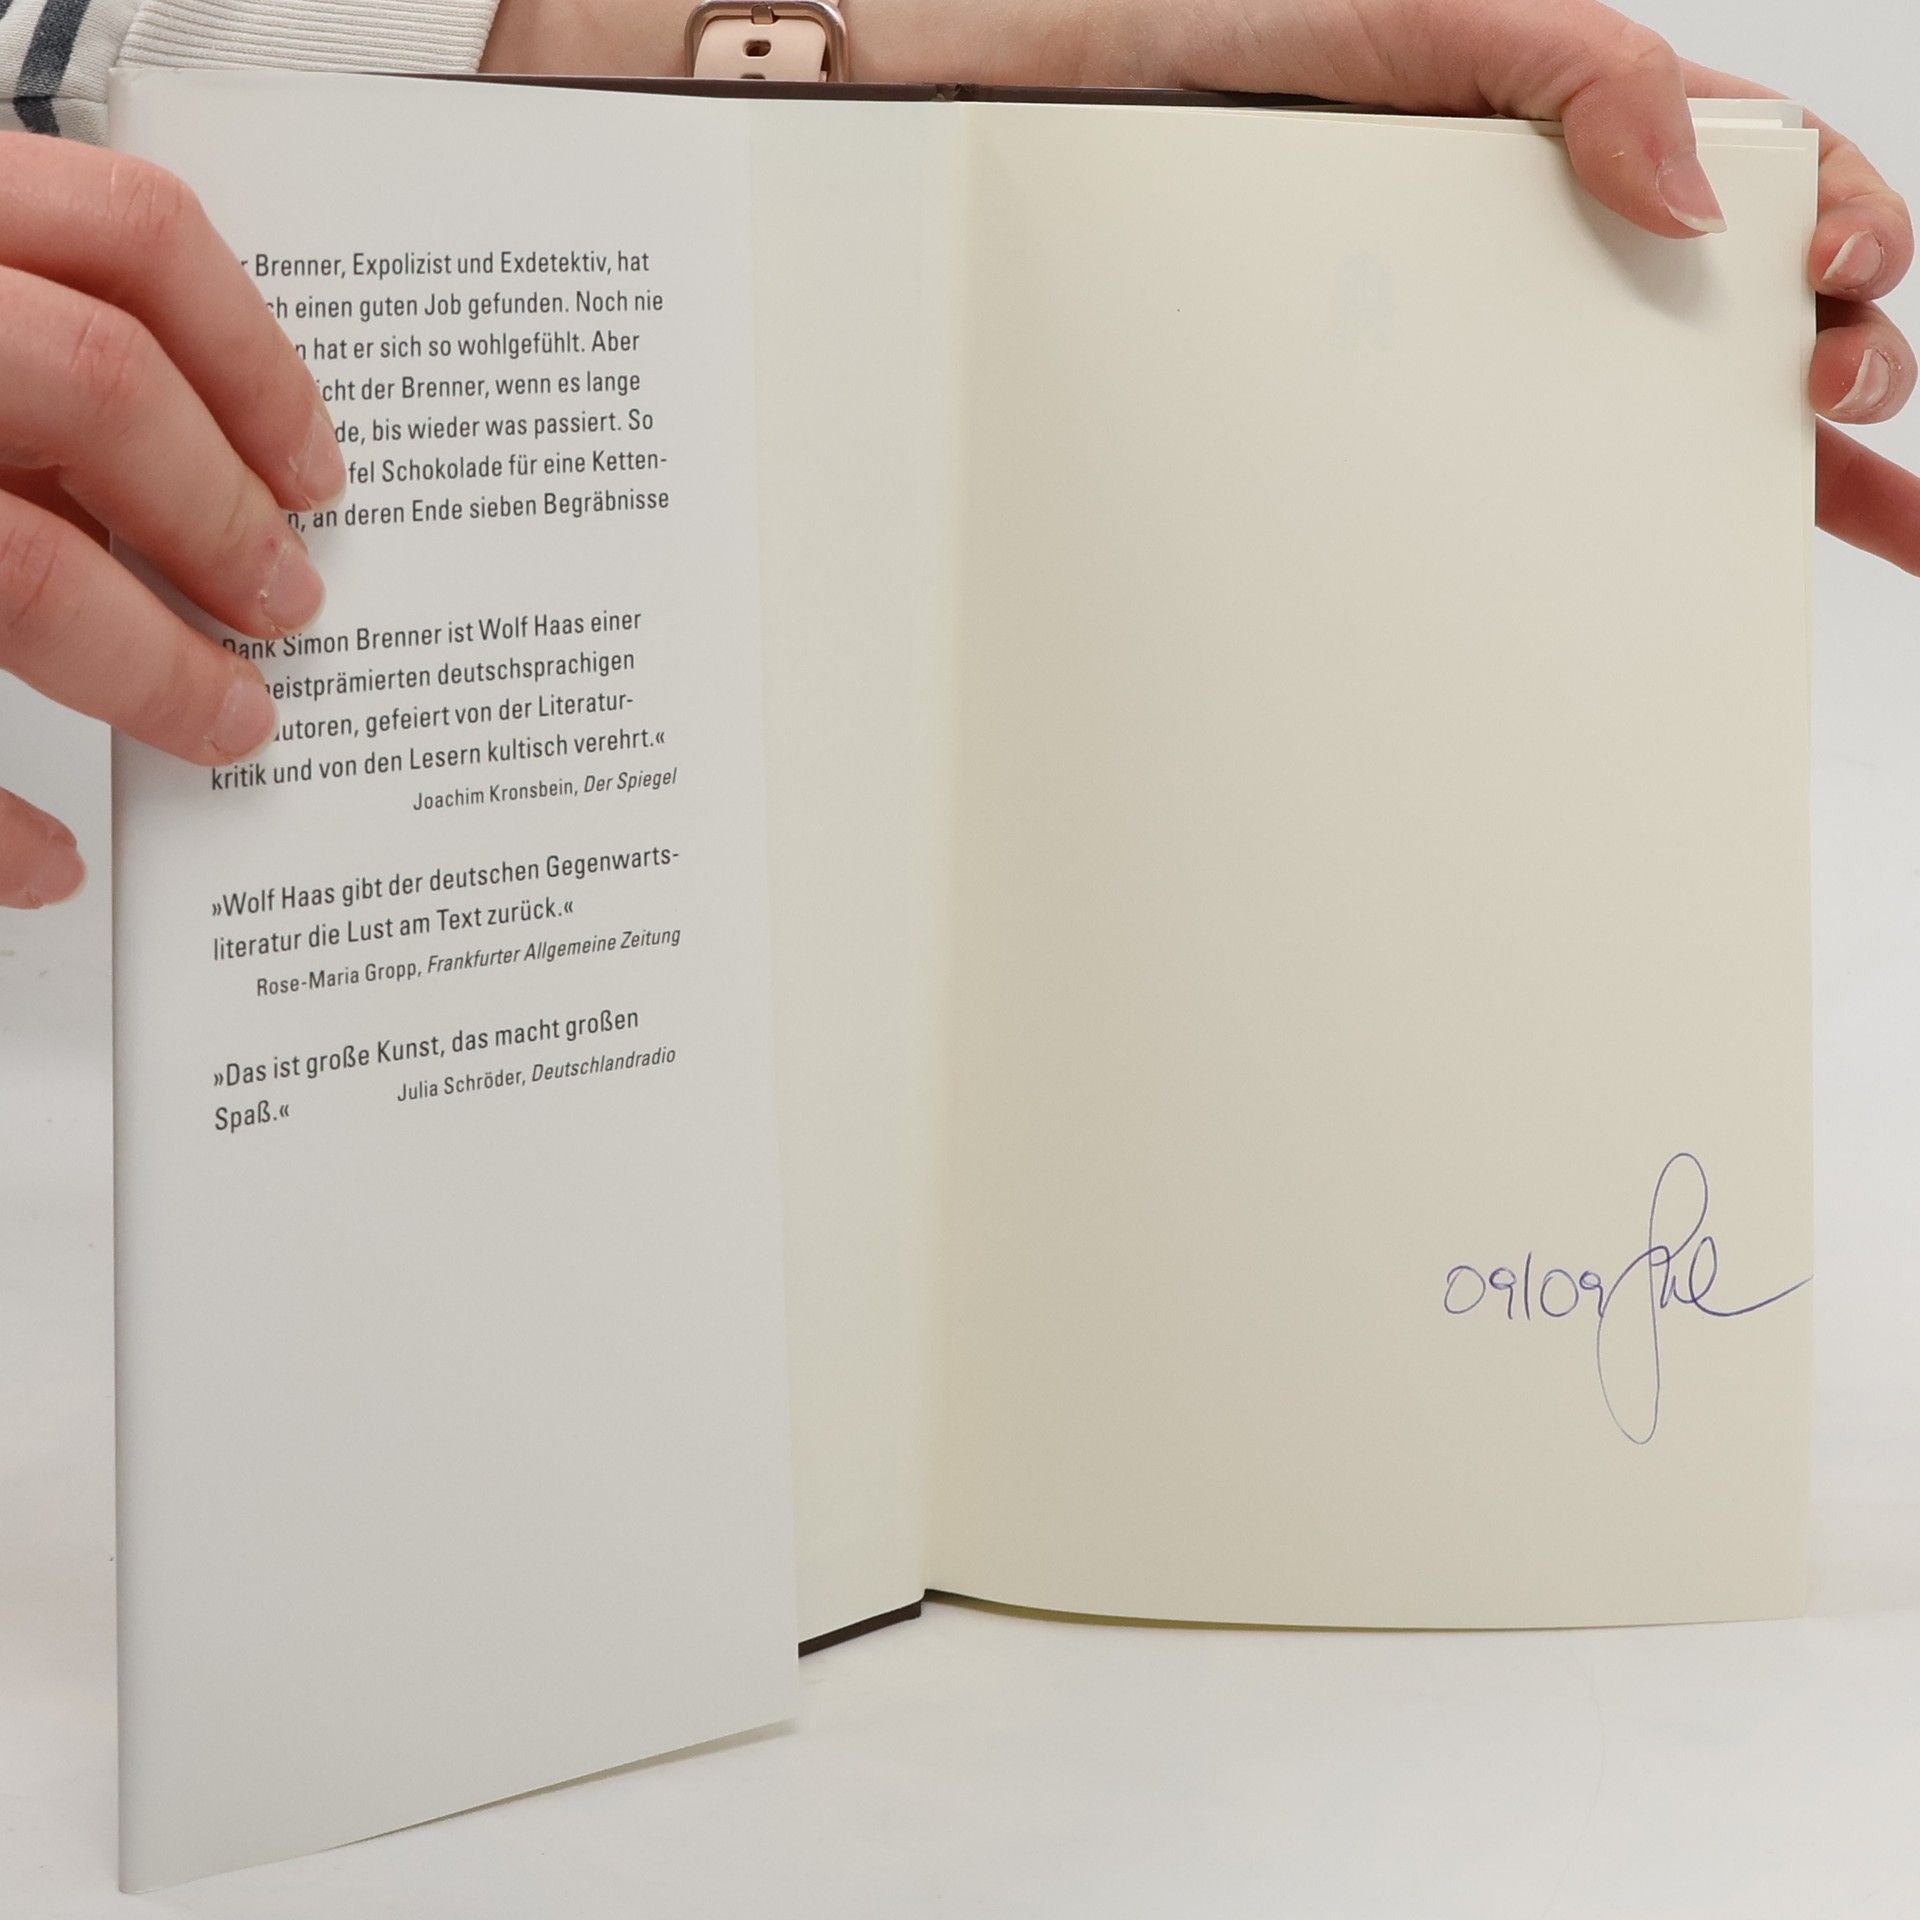 Brenner, Expolizist und Exdetektiv, hat
einen guten Job gefunden. Noch nie
hat er sich so wohlgefühlt. Aber
der Brenner, wenn es lange
bis wieder was passiert. So
Schokolade für eine Ketten-
an deren Ende sieben Begräbnisse
Dank Simon Brenner ist Wolf Haas einer
deutschsprachigen
gefeiert von der Literatur-
kritik und von den Lesern kultisch verehrt.«
Joachim Kronsbein, Der Spiegel
»Wolf Haas gibt der deutschen Gegenwarts-
literatur die Lust am Text zurück.«
Rose-Maria Gropp, Frankfurter Allgemeine Zeitung
»Das ist große Kunst, das macht großen
Spaß.« Julia Schröder, Deutschlandradio
09/09